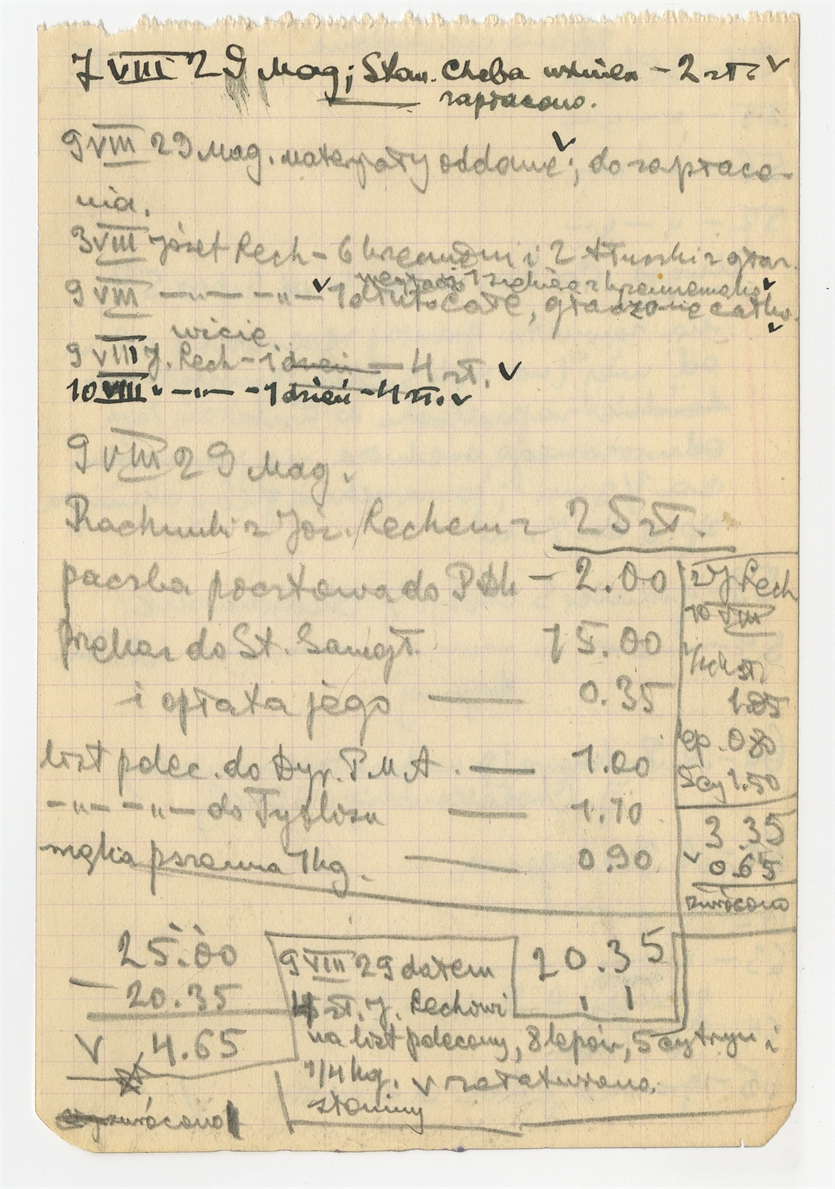 7 VIII 29 Mag; Stan. Cheba – 2 zł. ✓
zapłacono.
9 VIII 29 Mag. materjały oddane ✓; do zapłace-
nia.
3 VIII Józef Rech – 6 krzemieni i 2 tłuczki z
9 VIII —„— —„— ✓ 1 dłuto całe, gładzone całko- ✓
wicie ✓
9 VIII J. Rech – 1 dzień — 4 zł. ✓
10 VIII „ —„— - 1 dzień - 4 zł. ✓
9 VIII 29 Mag.
Rachunki z Józ. Rechem z 25 zł.
paczka pocztowa do – 2.00
przekaz do St. Samojł. 15.00
i opłata jego — 0.35
list polec. do Dyr. P.M.A. — 1.00
—„— —„— do — 1.10
mąka pszenna 1 kg. — 0.90
J Rech
10 VIII
1.05
lep. 0.80
5 cy 1.50
3.35
✓ 0.65
zwrócono
25.00
– 20.35
✓ 4.65
zwrócono
20.35
9 VIII 29 dałem
4 zł. J. Rechowi
na list polecony, 8 lepów, 5 cytryn i
1/4 kg. ✓ załatwiono.
słoniny